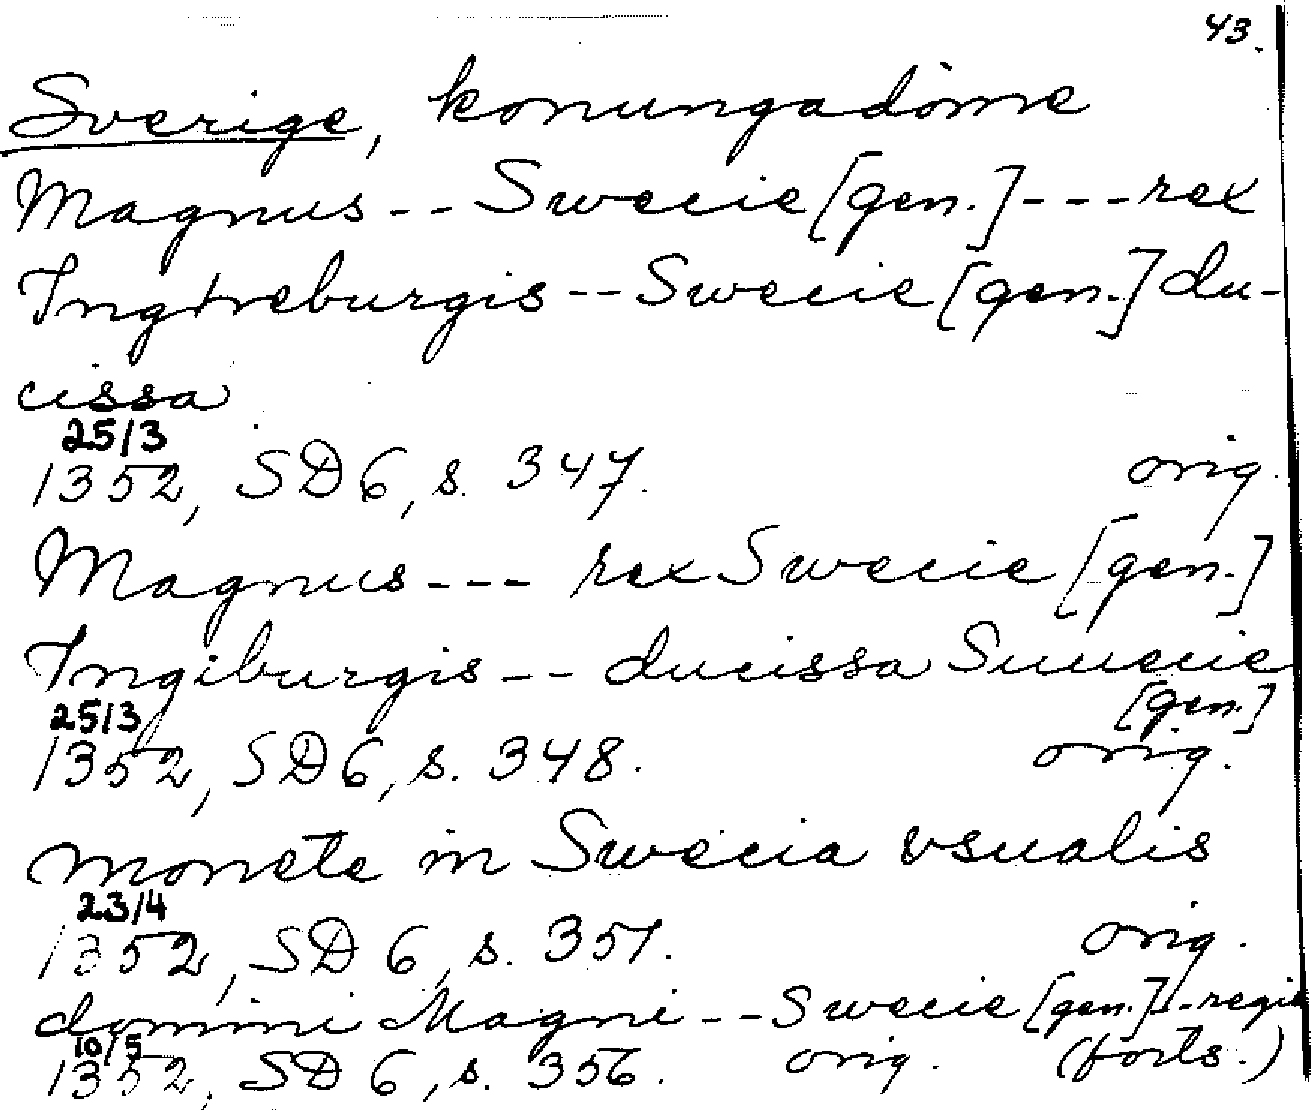 43.
Sverige, konungadöme
Magnus -- Swecie [gen.] --- rex
Ingireburgis -- Swecie [gen.] du-
cissa
25/3
1352, SD 6, s. 347. orig.
Magnus --- rex Swecie [gen.]
Ingiburgis -- ducissa Suuecie
[gen.]
25/3
1352, SD 6, s. 348. orig.
monete in Swecia vsualis
23/4
1352, SD 6, s. 351. orig.
domini Magni -- Swecie [gen.] -- regis
10/5
1352, SD 6, s. 356. orig. (forts.)